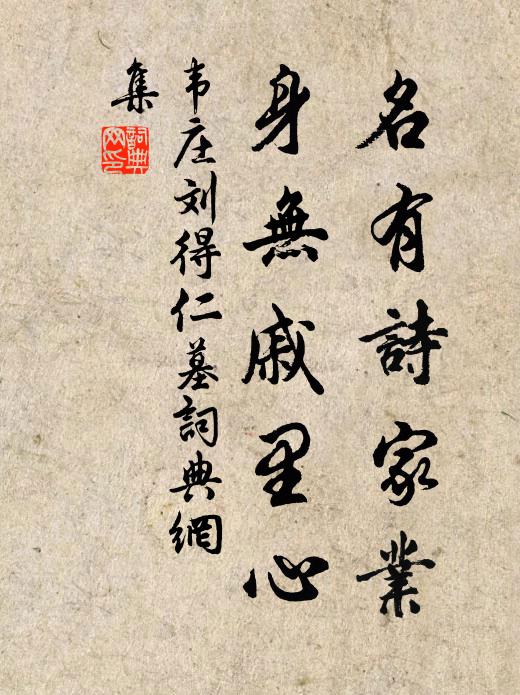 名有詩家業
身無戚里心
韦庄刘得仁墓詞典網
集
詞典
网印